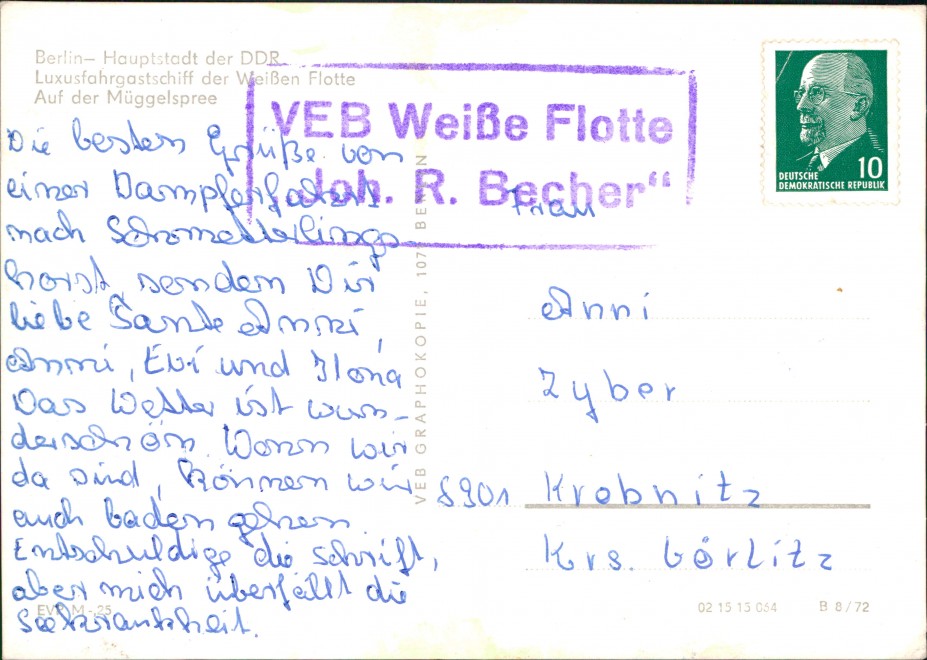 Berlin– Hauptstadt der DDR
Luxusfahrgastschiff der Weißen Flotte
Auf der Müggelspree
VEB Weiße Flotte
„Joh. R. Becher“
10
DEUTSCHE
DEMOKRATISCHE REPUBLIK
Die besten Grüße von
einer Dampferfahrt
nach Schmetterlings
horst, senden Dir
liebe Tante Anni,
Anni, Evi und Ilona
Das Wetter ist wun-
derschön. Wenn wir
da sind, können wir
auch baden gehen
Entschuldige die Schrift,
aber mich überfällt die
Seekrankheit.
VEB GRAPHOKOPIE, 107 BERLIN
Frau
Anni
Zyber
8901 Krobnitz
Krs. Görlitz
EVP M -.25
02 15 13 064 B 8/72